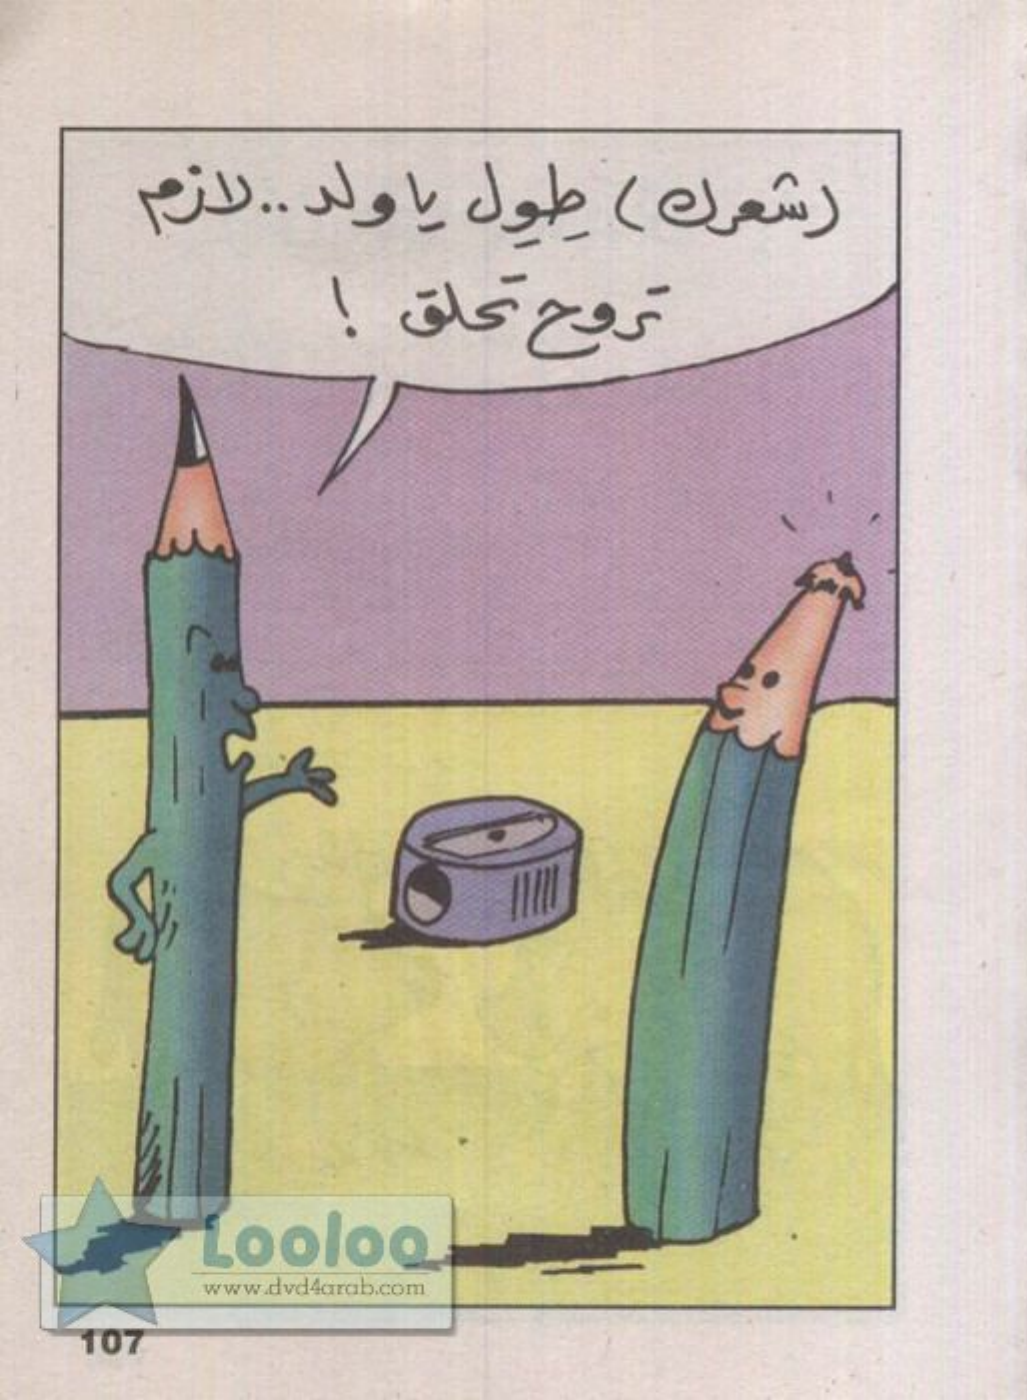 (شعرك) طِوِل يا ولد .. لازم
تروح تحلق !
Looloo
www.dvd4arab.com
107